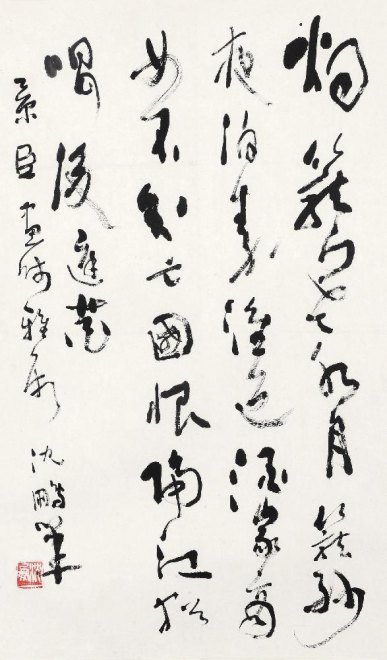 烟籠寒水月籠沙
夜泊秦淮近酒家商
女不知亡國恨隔江猶
唱後庭花
景臣画師雅屬 沈鵬